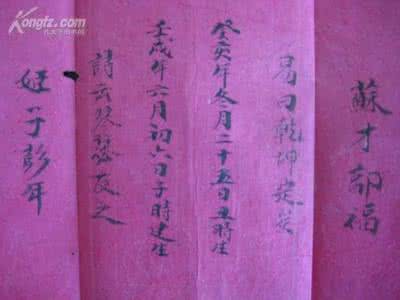 Kongfz.com
孔夫子旧书网
蘇才郭福
易曰乾坤定矣
癸亥年冬月二十五日丑時生
壬戌年六月初六日子時建生
詩云琴瑟友之
姬子彭年